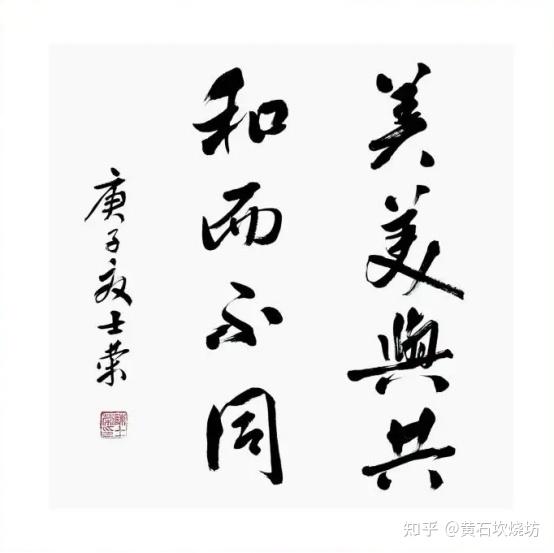 美美與共
和而不同
庚子夜士荣
知乎 @黄石坎烧坊